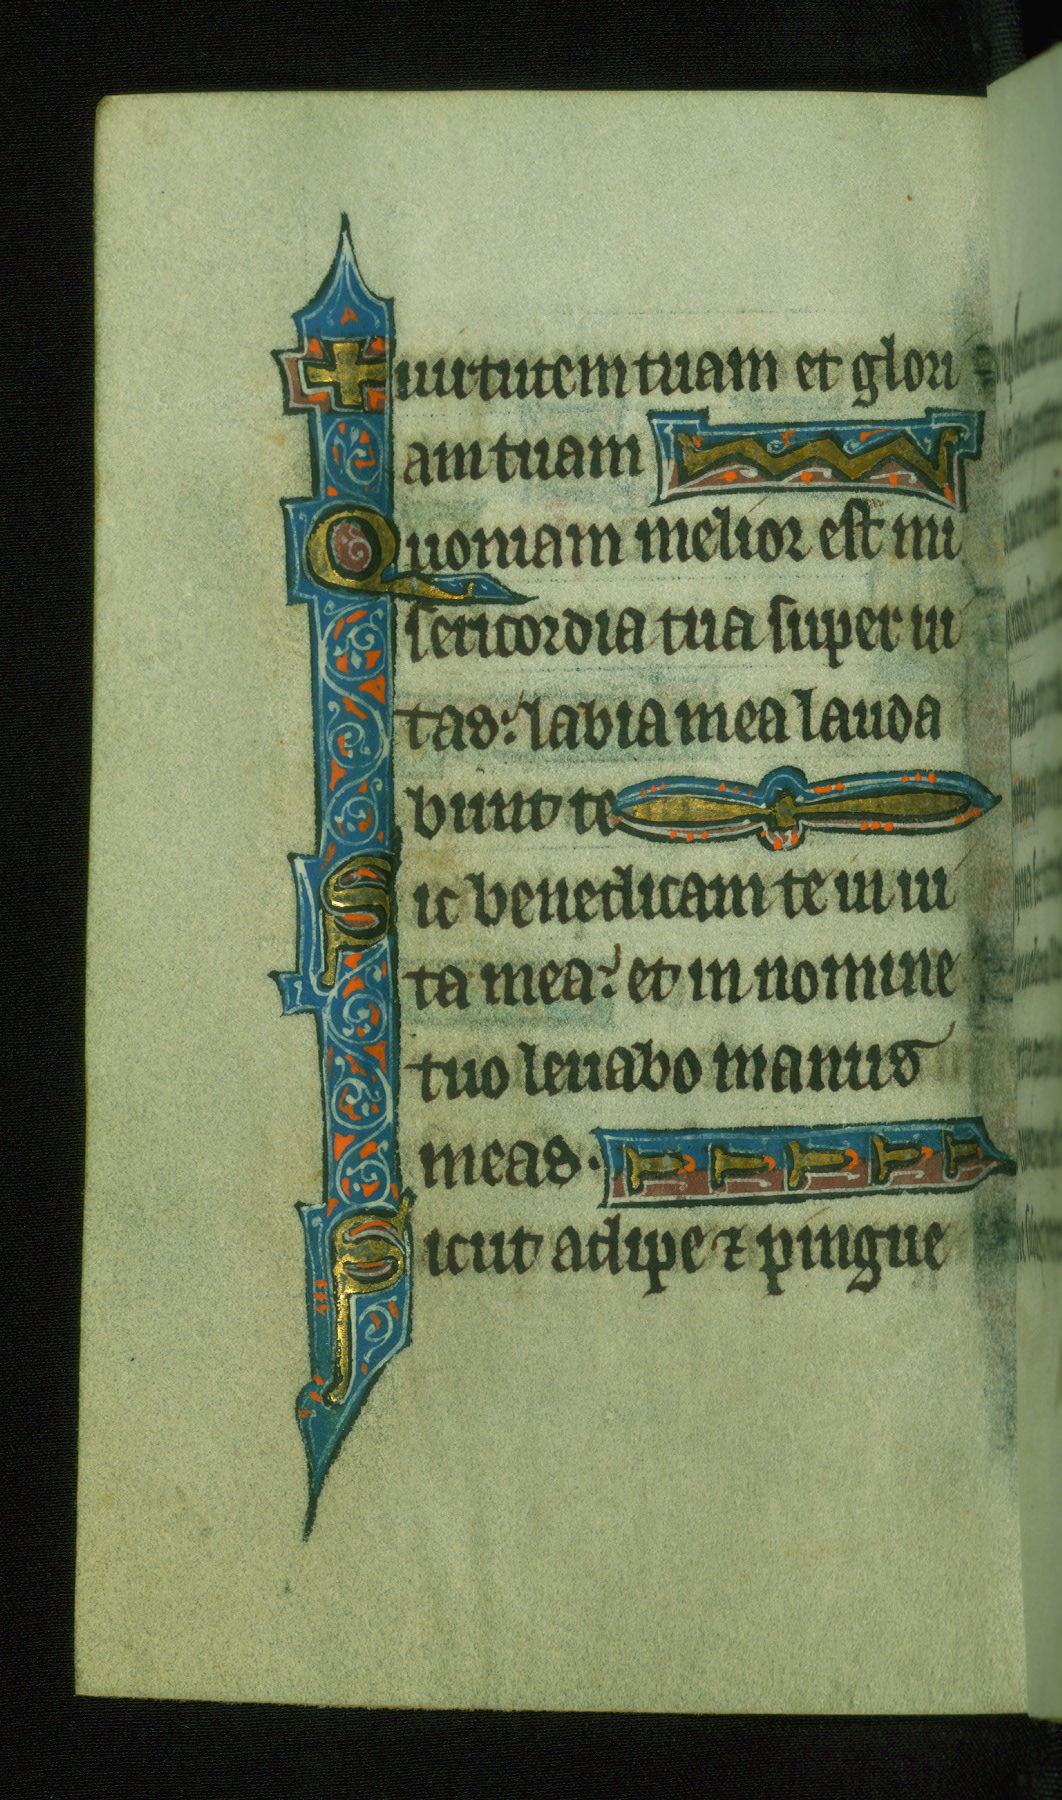 uirtutem tuam et glori
am tuam
Quoniam melior est mi
sericordia tua super ui
tas: labia mea lauda
bunt te
Sic benedicam te in ui
ta mea: et in nomine
tuo leuabo manus
meas.
Sicut adipe ⁊ pingue